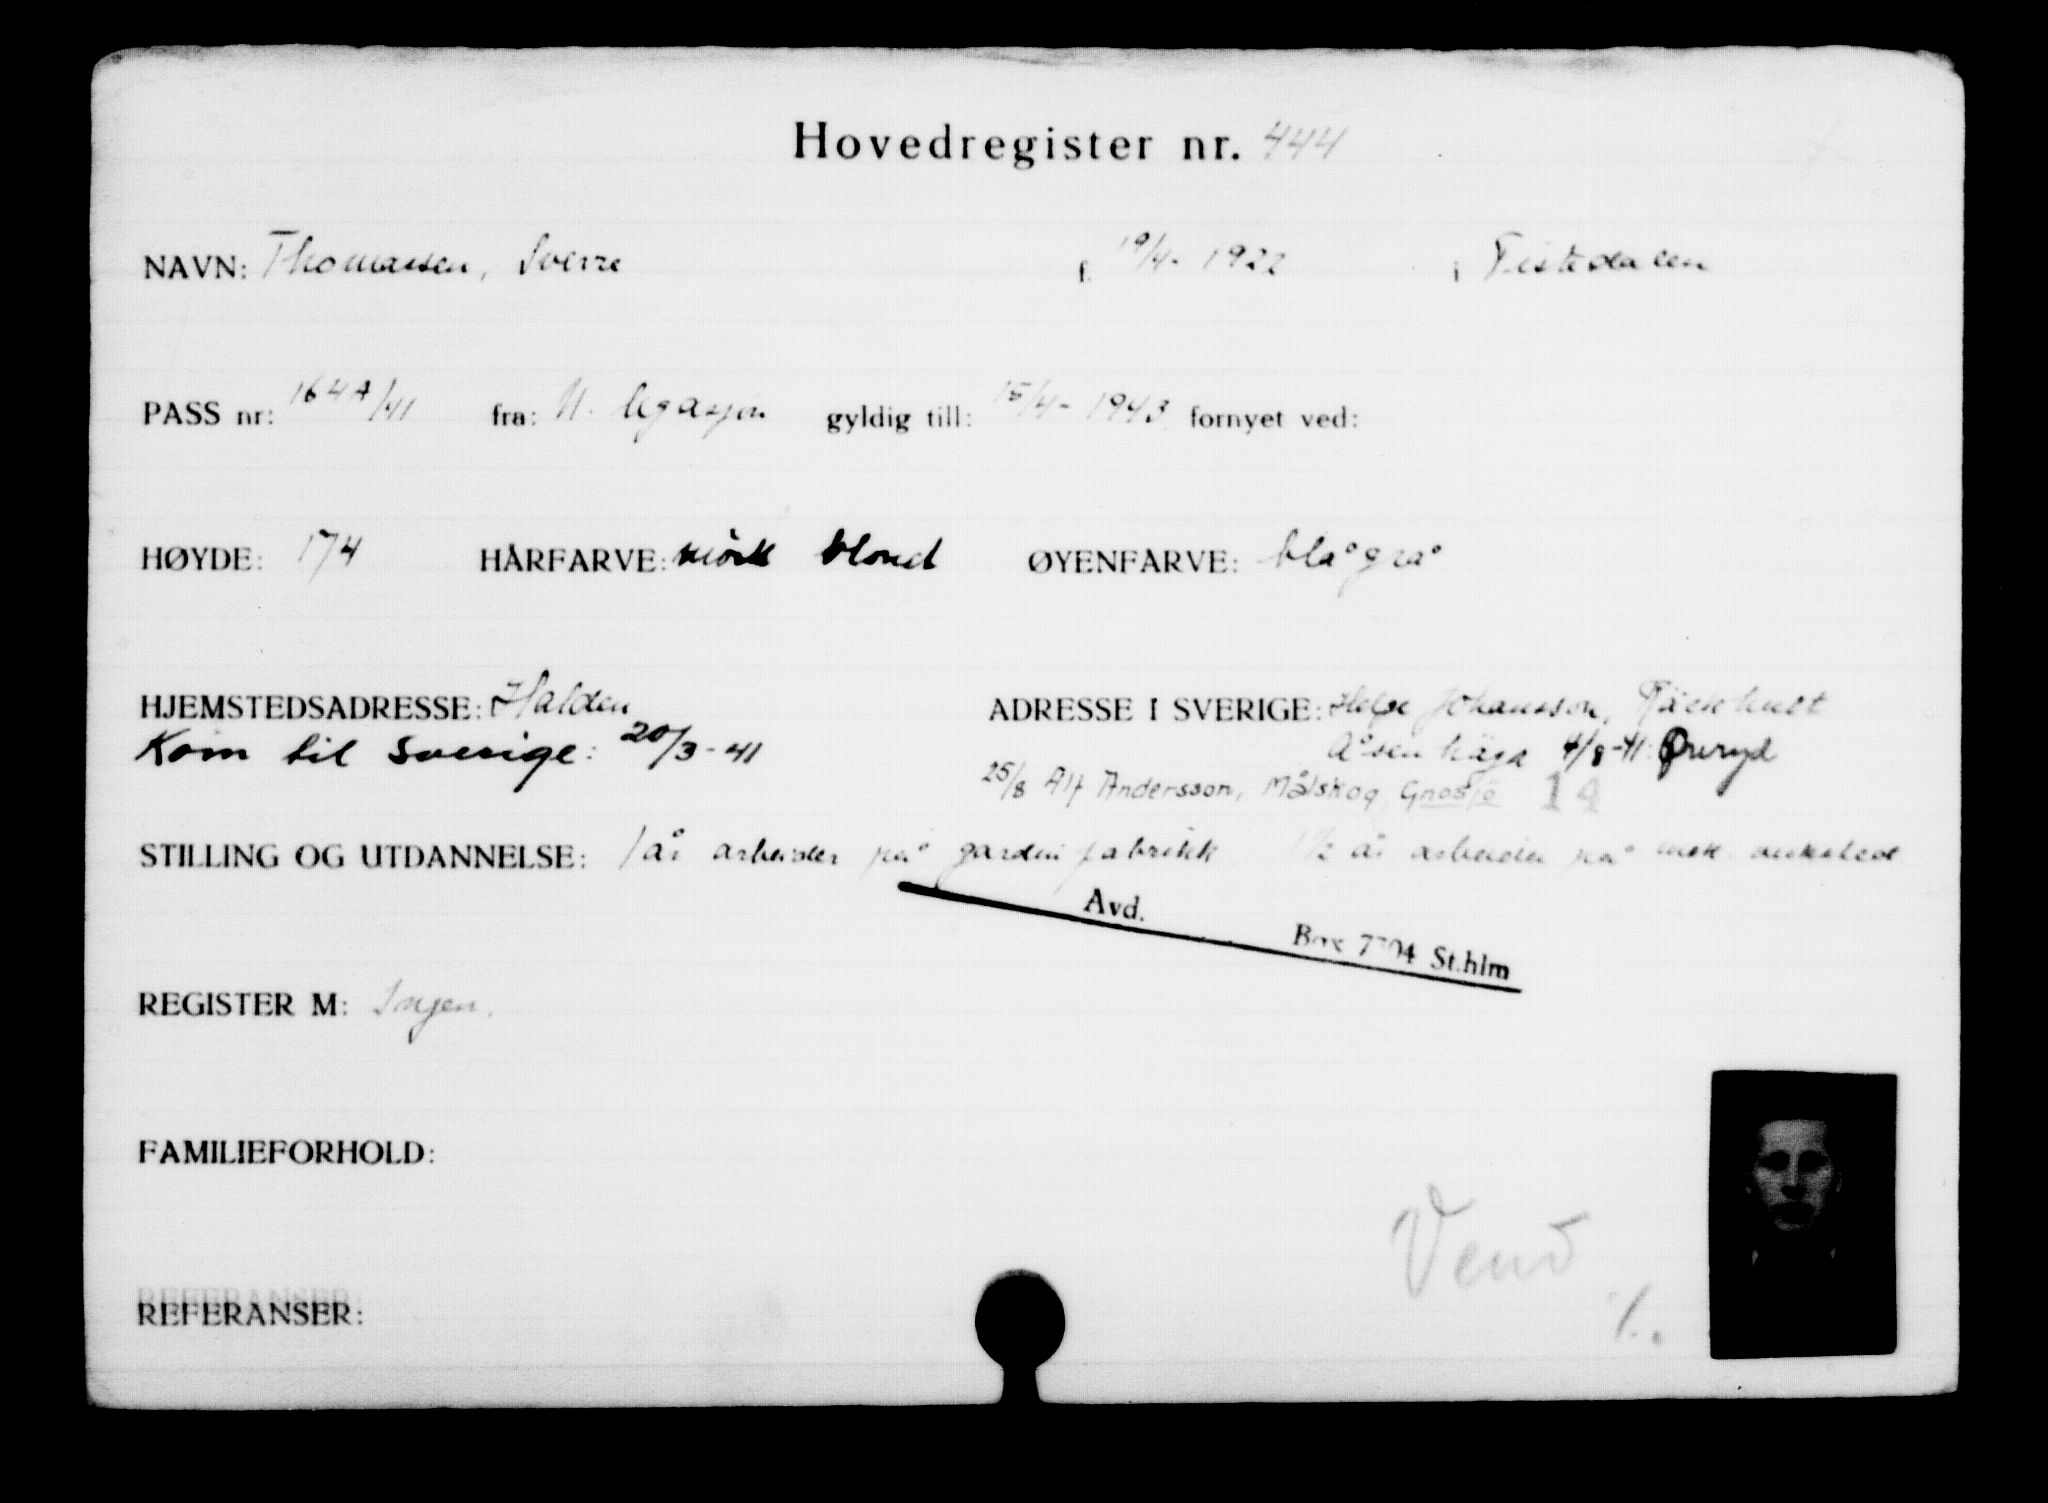 Hovedregister nr. 444
NAVN: Thomassen, Sverre f. 19/4- 1922 i Tistedalen
PASS nr: 164A/41 fra: N. legasjon gyldig till: 15/4- 1943 fornyet ved:
HØYDE: 174 HÅRFARVE: mörk blond ØYENFARVE: blågrå
HJEMSTEDSADRESSE: Halden ADRESSE I SVERIGE: Helge Johansson,
Kom til Sverige: 20/3-41 Åsenhöga 4/8-41: Öreryd
25/8 Alf Andersson, Målskog, Gnosjö 14
STILLING OG UTDANNELSE: 1 år arbeider på gardinfabrikk 1 1/2 år arbeider på mek. verksted
Avd. Box 7704 St.hlm
REGISTER M: Ingen.
FAMILIEFORHOLD:
Vend
REFERANSER: